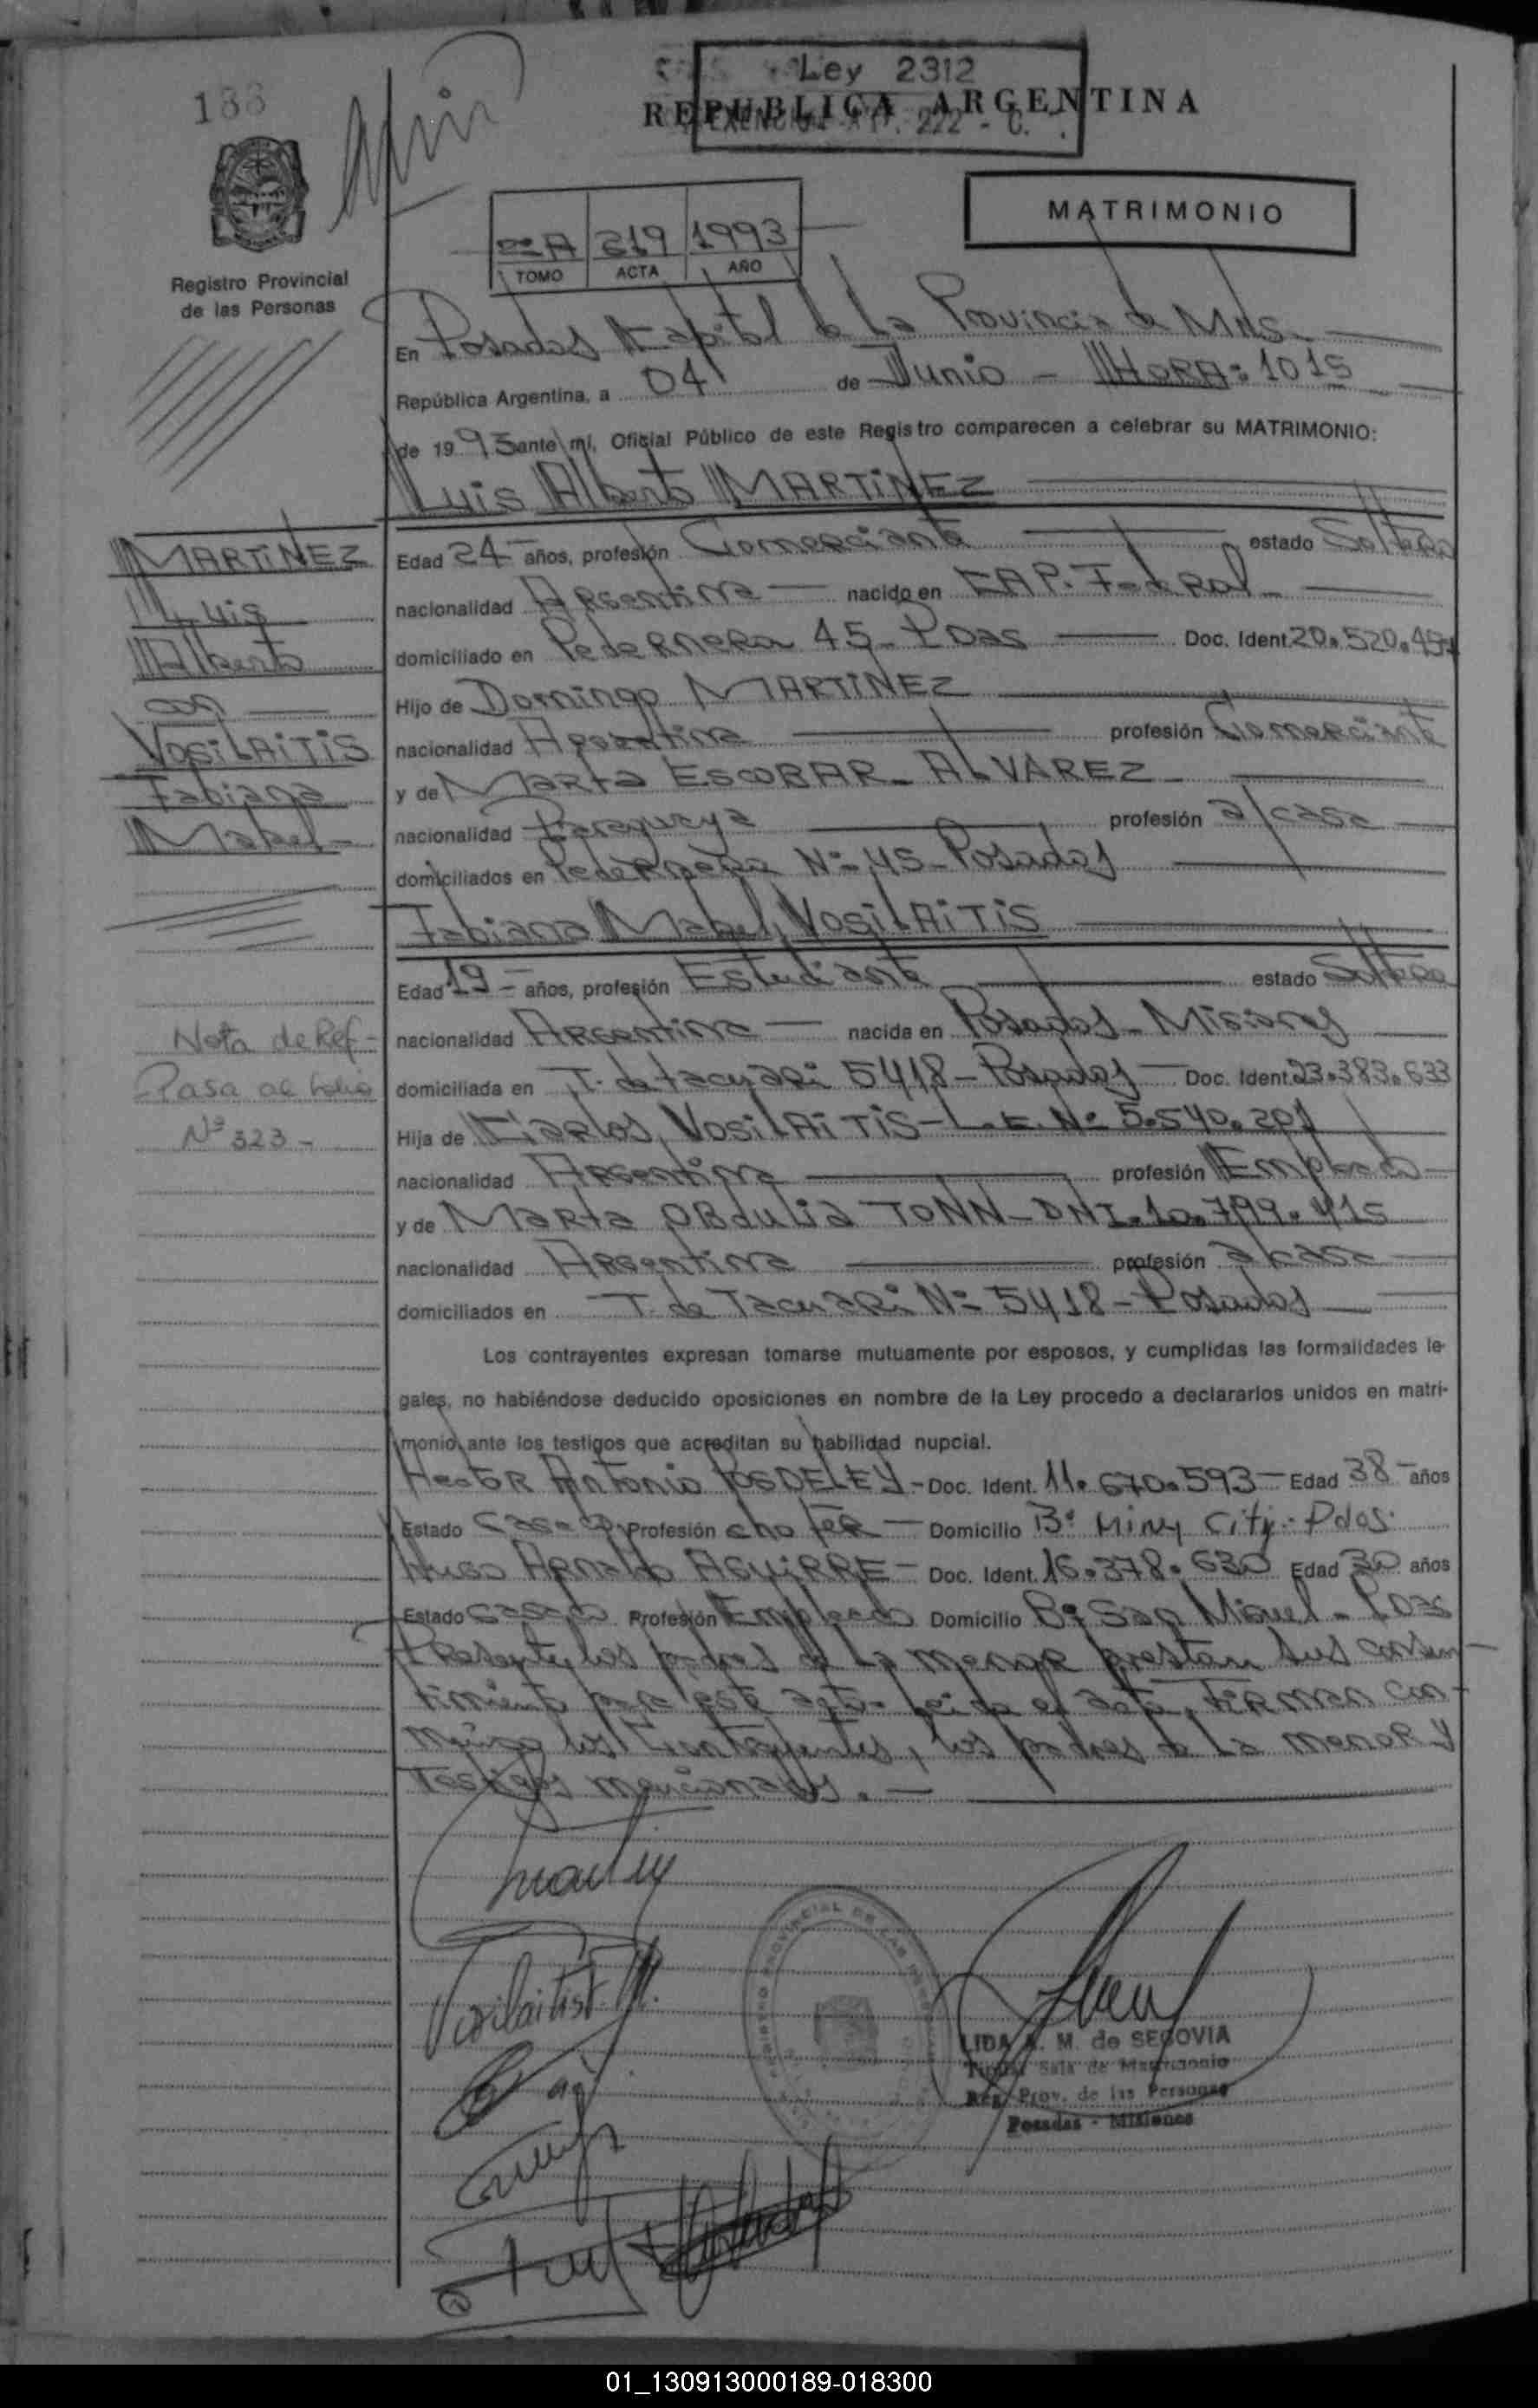 188
Ley 2312
REPUBLICA ARGENTINA
MATRIMONIO
2º A 219 1993
TOMO ACTA AÑO
Registro Provincial
de las Personas
En Posadas Kapital de La Provincia de Mnes.
República Argentina, a 04 de Junio - HORA: 1015
de 1993 ante mí, Oficial Público de este Registro comparecen a celebrar su MATRIMONIO:
Luis Alberto MARTINEZ
MARTINEZ
Luis
Alberto
con
VOSILAITIS
Fabiana
Mabel -
Edad 24 - años, profesión Comerciante estado Soltero
nacionalidad Argentina - nacido en CAP. Federal -
domiciliado en Pedernera 45 - Pdas Doc. Ident. 20.520.
Hijo de Domingo MARTINEZ
nacionalidad Argentina profesión Comerciante
y de Marta ESCOBAR - ALVAREZ -
nacionalidad Paraguaya profesión a/casa
domiciliados en Pedernera Nº 45 - Posadas
Fabiana Mabel VOSILAITIS
Edad 19 - años, profesión Estudiante estado Soltera
nacionalidad Argentina - nacida en Posadas - Misiones
domiciliada en T. de Tacuari 5418 - Posadas - Doc. Ident. 23.383.633
Hija de Carlos VOSILAITIS - L.E. Nº 5.540.201
nacionalidad Argentina profesión Empleado
y de Marta OBdulia TONN - DNI. 10.799.415
nacionalidad Argentina profesión a/casa
domiciliados en T. de Tacuari Nº 5418 - Posadas
Nota de Ref -
Pasa al folio
Nº 323 -
Los contrayentes expresan tomarse mutuamente por esposos, y cumplidas las formalidades le-
gales, no habiéndose deducido oposiciones en nombre de la Ley procedo a declararlos unidos en matri-
monio ante los testigos que acreditan su habilidad nupcial.
Hector Antonio POSDELEY - Doc. Ident. 11.670.593 - Edad 38 - años
Estado Casado Profesión chofer - Domicilio Bº Miny City - Pdas.
Hugo Arnaldo AGUIRRE - Doc. Ident. 16.378.630 Edad 30 años
Estado Casado Profesión Empleado Domicilio Bº San Miguel - Pdas
Presente los padres de la menor prestan sus consen-
timiento para este acto. Leida el acta, firman con-
migo los Contrayentes, los padres de la menor y
Testigos mencionados. -
Vosilaitis F. M.
LIDA M. de SEGOVIA
Titular Sala de Matrimonio
Reg. Prov. de las Personas
Posadas - Misiones
01_130913000189-018300